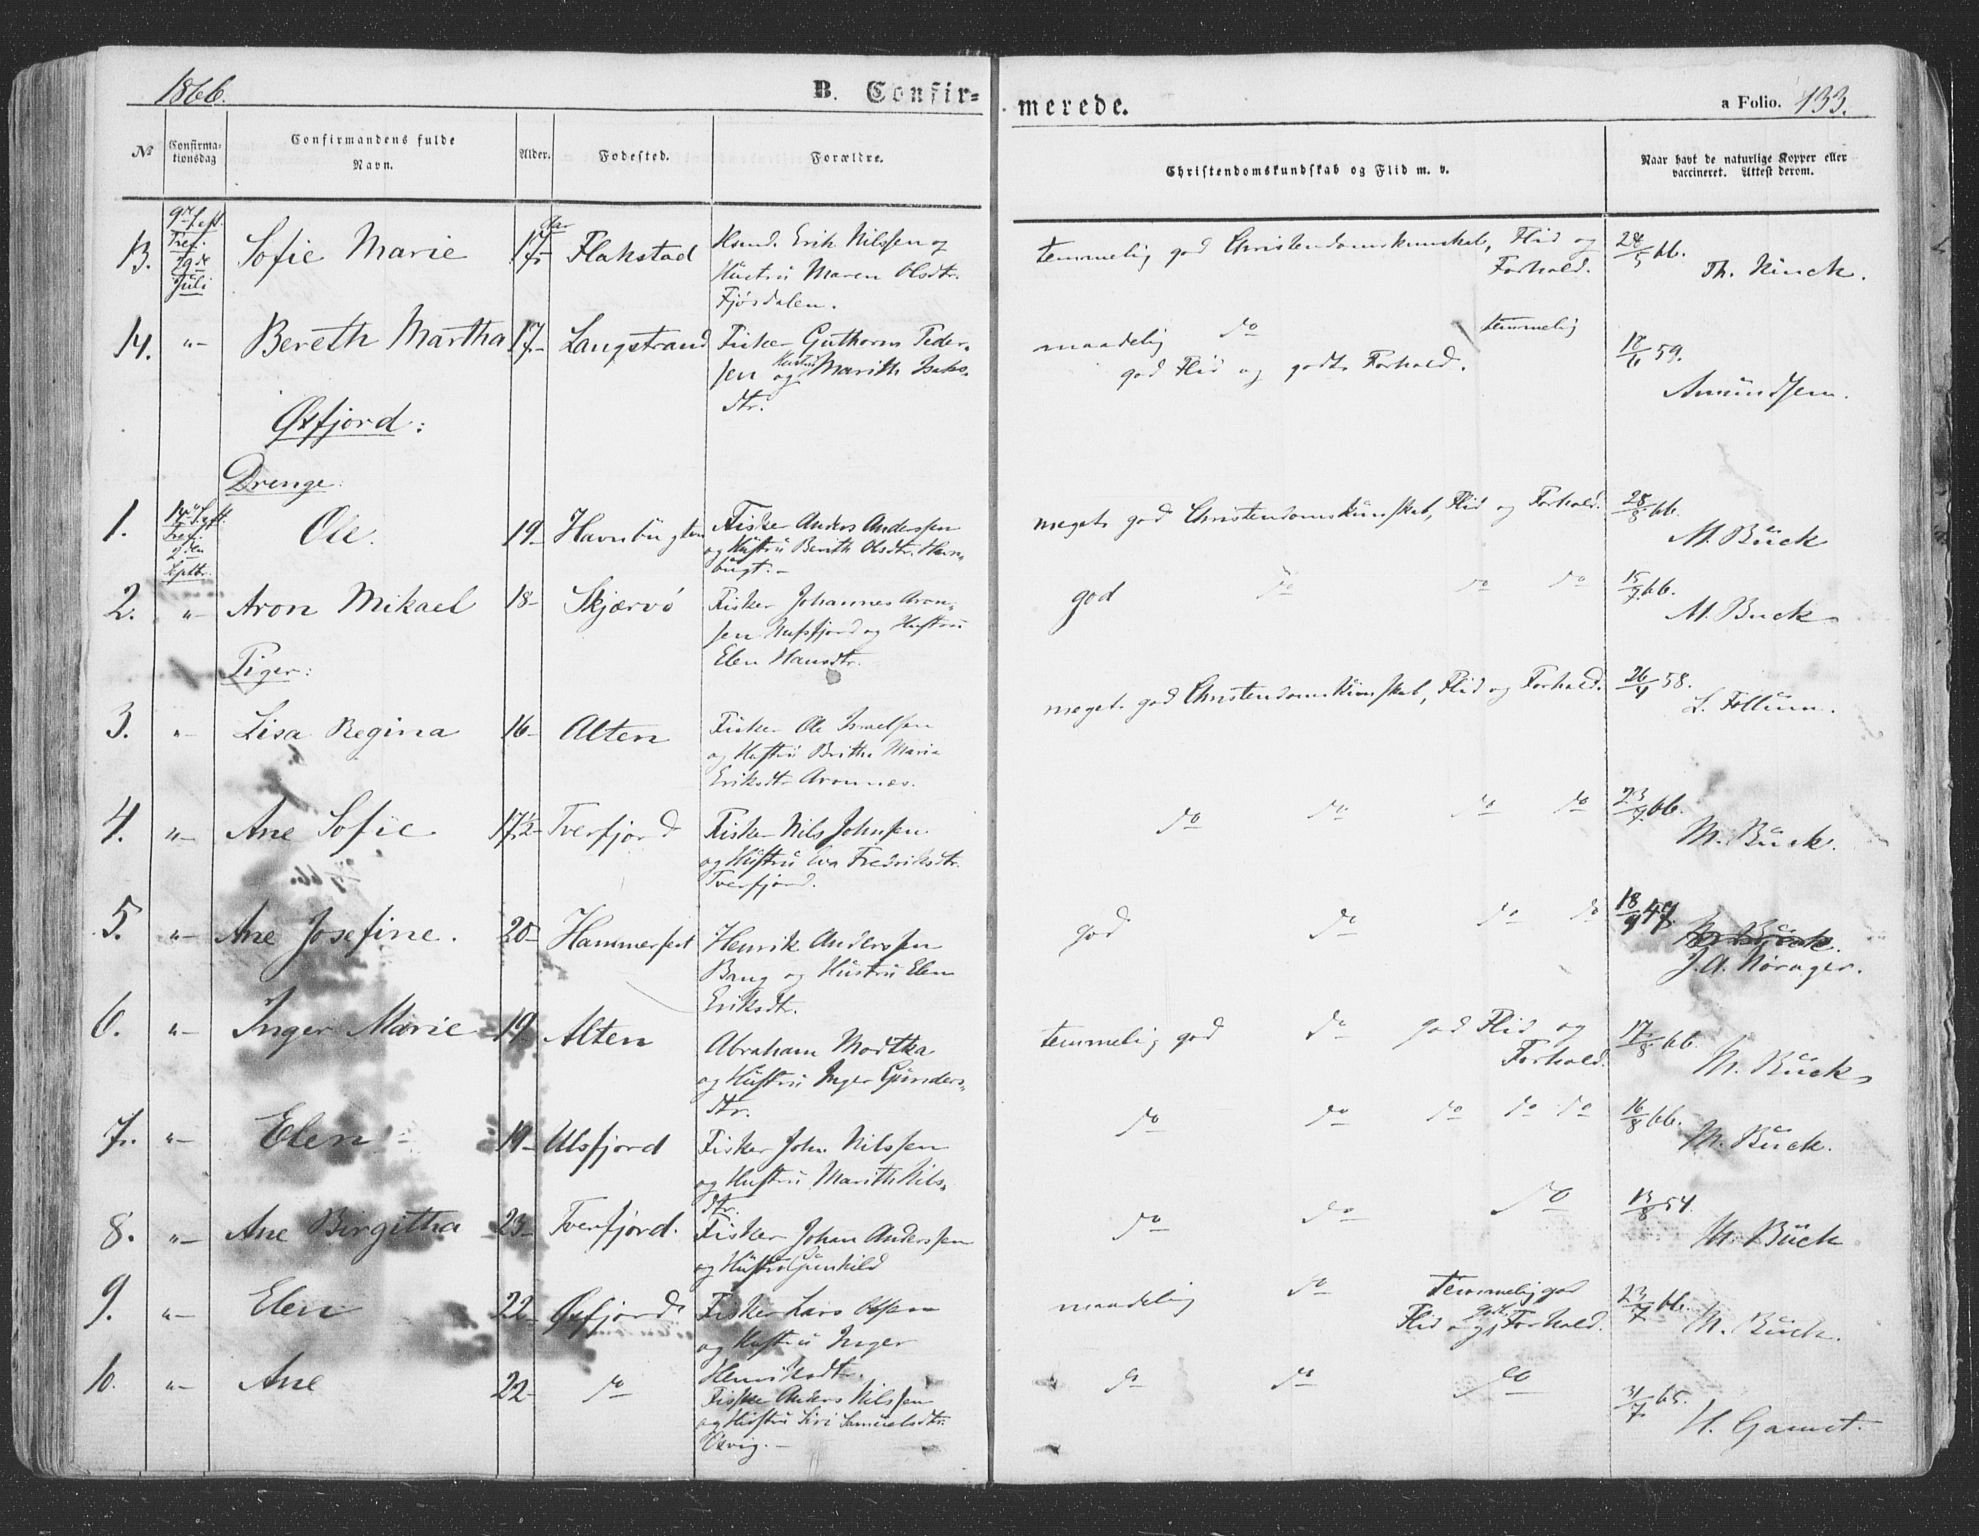 1866.
B. Confir=
merede.
a Folio. 133.
№
Confirma-
tionsdag
Confirmandens fulde
Navn.
Alder.
Fødested.
Forældre.
Christendomskundskab og Flid m. v.
Naar havt de naturlige Kopper eller
vaccineret. Attest derom.
13.
Juli
Sofie Marie
17 Aar
Flakstad
Erik Nilssen og
Hustru Maren Olsdtr.
Fjøsdalen.
temmelig god Christendomskunskab, Flid og
Forhold.
28/5 66.
Th. Kinck.
14.
"–
Bereth Martha
17–
Langstrand
Fisker Guthorm Peder-
sen og Hustru Marith Isaks-
dtr.
maadelig do temmelig
god Flid og godt Forhold.
18/6 59.
Amundsen.
Øxfjord:
Drenge:
1.
Septbr.
Ole.
19–
Havnbugten
Fisker Anders Anderssen
og Hustru Berith Olsdtr. Havn-
bugt.–
meget god Christendomskunskab, Flid og Forhold.
28/8 66.
M. Buck
2.
"–
Aron Mikael
18–
Skjærvø
Fisker Johannes Aron-
sen Nufsfjord og Hustru
Elen Hansdtr.
god do do do
15/7 66.
M. Buck
Piger:
3.
"–
Lisa Regina
16–
Alten
Fisker Ole Israelsen
og Hustru Brithe Maria
Eriksdtr. Aronnes.
meget god Christendomskunskab, Flid og Forhold.
26/4 58.
L. Follum.
4.
"–
Ane Sofie
17½–
Tverfjord
Fisker Nils Johnsen
og Hustru Eva Fredriksdtr.
Tverfjord.
do do do do
23/9 66.
M. Buck.
5.
"–
Ane Josefine.
20–
Hammerfest
Henrik Anderssen
Bang og Hustru Elen
Eriksdtr.
god do do do
18/9 47.
J. A. Norager.
6.
"–
Inger Marie
19.
Alten
Abraham Modtka
og Hustru Inger Gunders-
dtr.
temmelig god do god Flid og
Forhold.
17/8 66.
M. Buck
7.
"–
Elen
19–
Ulsfjord
Fisker John Nilssen
og Hustru Marith Nils-
dtr.
do do do do do
16/8 66.
M. Buck.
8.
"–
Ane Birgitha
23–
Tverfjord.
Fisker Johan Anderssen
og Hustru Gunhild
do do do
13/8 54.
M. Buck
9.
"–
Elen
22–
Øxfjord
Fisker Lars Olsen
og Hustru Inger
Henriksdtr.
maadelig do temmelig god
Flid og godt Forhold.
23/7 66.
M. Buck.
10.
"–
Ane
22–
do
Fisker Anders Nilssen
og Hustru Siri Samuelsdtr.
do do do
31/7 65.